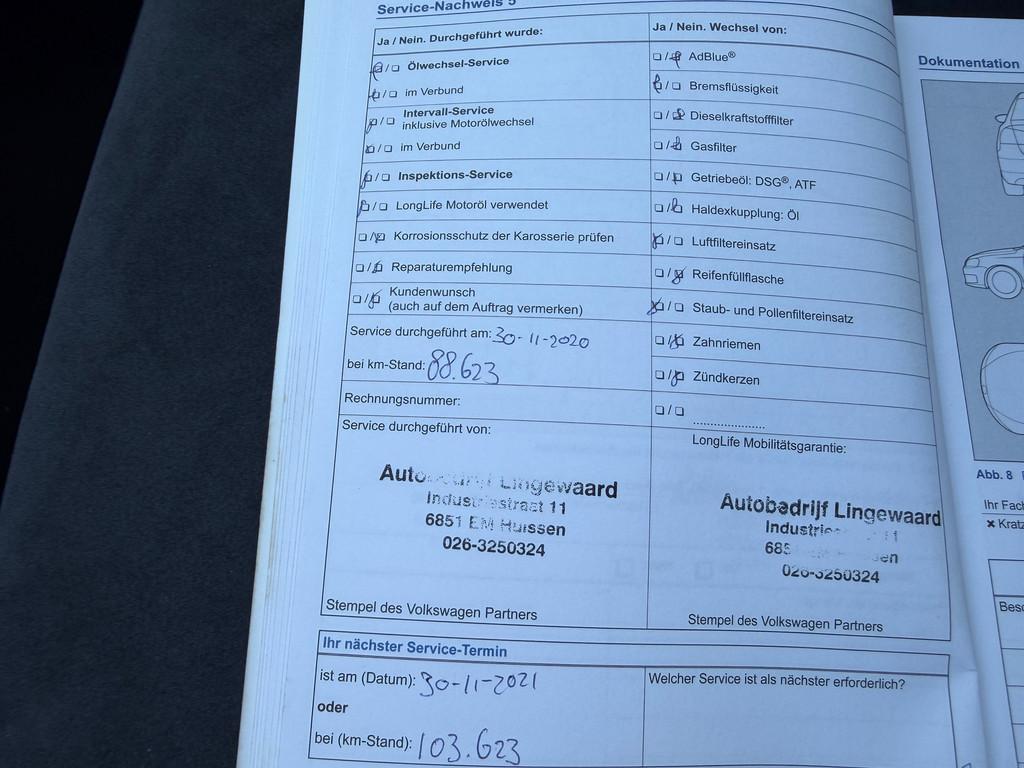 Service-Nachweis 5
Ja / Nein. Durchgeführt wurde:
Ölwechsel-Service
im Verbund
Intervall-Service
inklusive Motorölwechsel
im Verbund
Inspektions-Service
LongLife Motoröl verwendet
Korrosionsschutz der Karosserie prüfen
Reparaturempfehlung
Kundenwunsch
(auch auf dem Auftrag vermerken)
Service durchgeführt am: 30-11-2020
bei km-Stand: 88.623
Rechnungsnummer:
Service durchgeführt von:
Autobedrijf Lingewaard
Industriestraat 11
6851 EM Huissen
026-3250324
Stempel des Volkswagen Partners
Ja / Nein. Wechsel von:
AdBlue®
Bremsflüssigkeit
Dieselkraftstofffilter
Gasfilter
Getriebeöl: DSG®, ATF
Haldexkupplung: Öl
Luftfiltereinsatz
Reifenfüllflasche
Staub- und Pollenfiltereinsatz
Zahnriemen
Zündkerzen
....................
LongLife Mobilitätsgarantie:
Autobedrijf Lingewaard
Industrie 11
685 en
026-3250324
Stempel des Volkswagen Partners
Ihr nächster Service-Termin
ist am (Datum): 30-11-2021
oder
bei (km-Stand): 103.623
Welcher Service ist als nächster erforderlich?
Dokumentation
Abb. 8
Ihr Fach
× Kratz
Besc